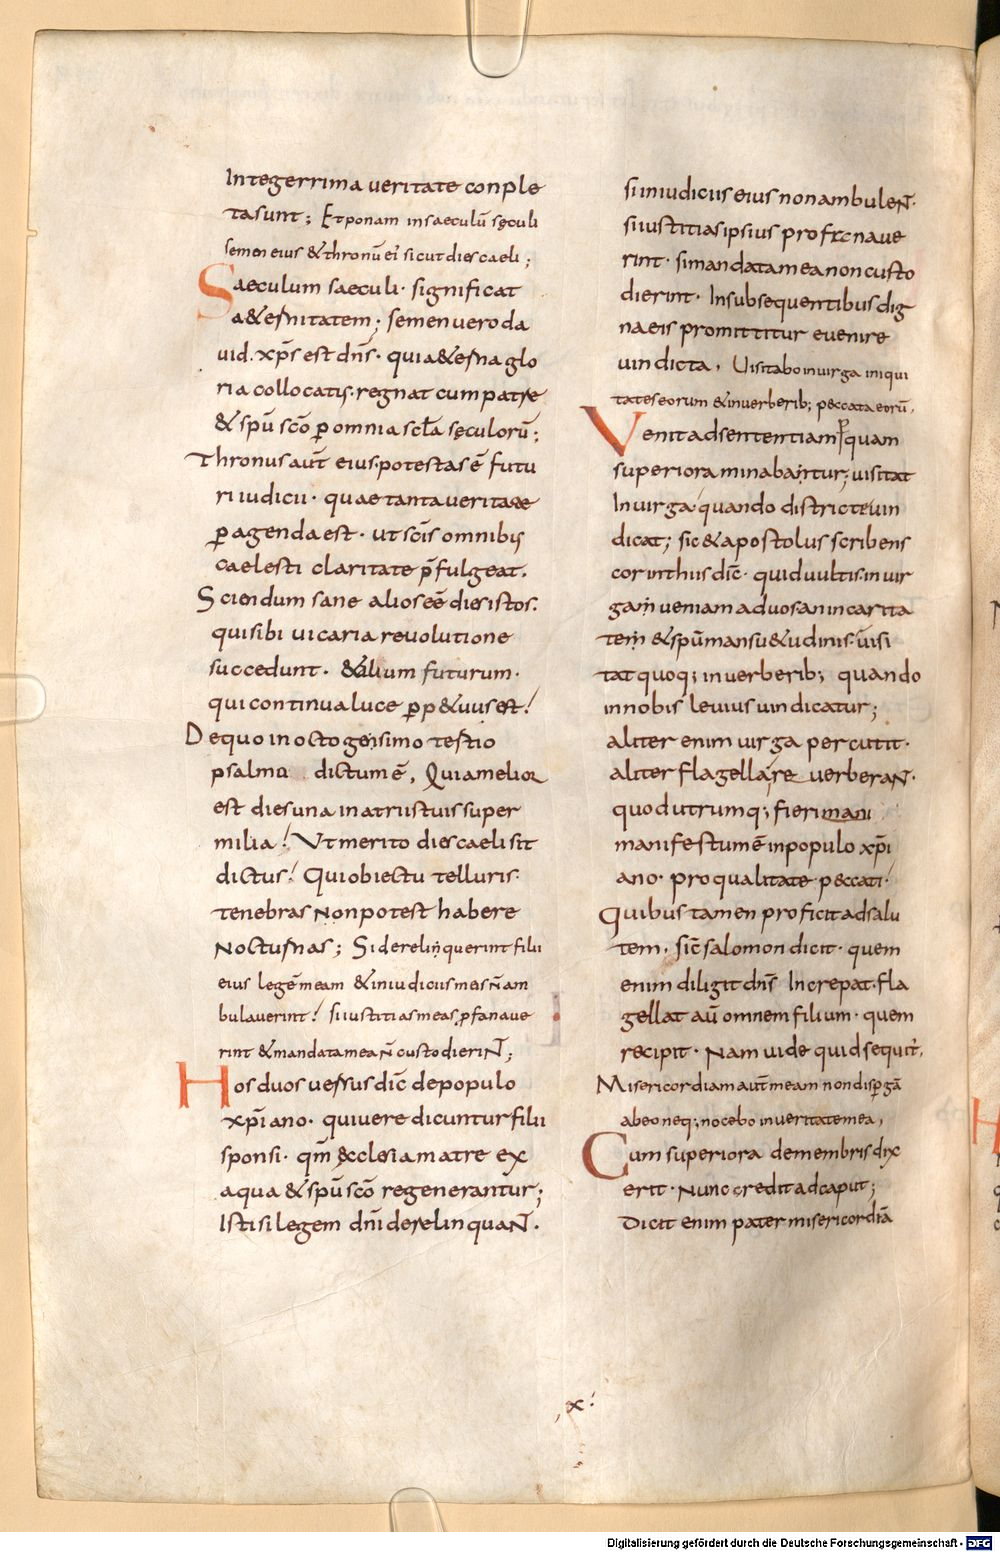 Integerrima ueritate conple
ta sunt; Et ponam in saeculū seculi
semen eius & thronū ei' sicut dies caeli;
Saeculum saeculi· significat
a&ernitatem; semen uero da
uid· xp̄s est dn̄s· quia &erna glo
ria collocatis· regnat cum patre
& spū sc̄o ꝑ omnia scła seculorū;
Thronus aūt eius· potestas ē futu
ri iudicii· quae tanta ueritate
ꝑagenda est· ut sc̄is omnibus
caelesti claritate p̄fulgeat.
Sciendum sane alios eē dies istos·
qui sibi uicaria reuolutione
succedunt· & alium futurum·
qui continua luce ꝑp&uus est!
De quo in octogensimo tertio
psalmo dictum ē, Quia melior
est dies una in atriis tuis super
milia! Ut merito dies caeli sit
dictus! Qui obiectu telluris·
tenebras non potest habere
nocturnas; Si derelinquerint filii
eius legē meam & in iudiciis meis n̄ am
bulauerint! si iustitias meas ꝓfanaue
rint & mandata mea n̄ custodierin̄t;
Hos duos uersus dic̄ de populo
xp̄iano· qui uere dicuntur filii
sponsi· qm̄ ecclesia matre ex
aqua & spū sc̄o regenerantur;
Isti si legem dn̄i derelinquant·
si in iudiciis eius non ambulent·
si iustitias ipsius profanaue
rint· si mandata mea non custo
dierint· In subsequentibus dig
na eis promittitur euenire
uindicta, Uisitabo in uirga iniqui
tates eorum & in uerberib; peccata eorū,
Venit ad sententiam quam
superiora minabantur; uisitat
In uirga quando districte uin
dicat; sic & apostolus scribens
corinthiis dic̄· quid uultis· in uir
ga ueniam ad uos an in carita
te & spū mansu&udinis· uisi
tat quoq; in uerberib; quando
in nobis leuius uindicatur;
aliter enim uirga percutit·
aliter flagellare uerberant·
quod utrumq; fieri
manifestum ē in populo xp̄i
ano· pro qualitate peccati!
Quibus tamen proficit ad salu
tem· sic̄ salomon dicit· quem
enim diligit dn̄s Increpat· fla
gellat aū omnem filium· quem
recipit· Nam uide quid sequit̄,
Misericordiam aūt meam non disꝑgā
ab eo neq; nocebo in ueritate mea,
Cum superiora de membris dix
erit· Nunc redit ad caput;
Dicit enim pater misericordiā
x
Digitalisierung gefördert durch die Deutsche Forschungsgemeinschaft - DFG